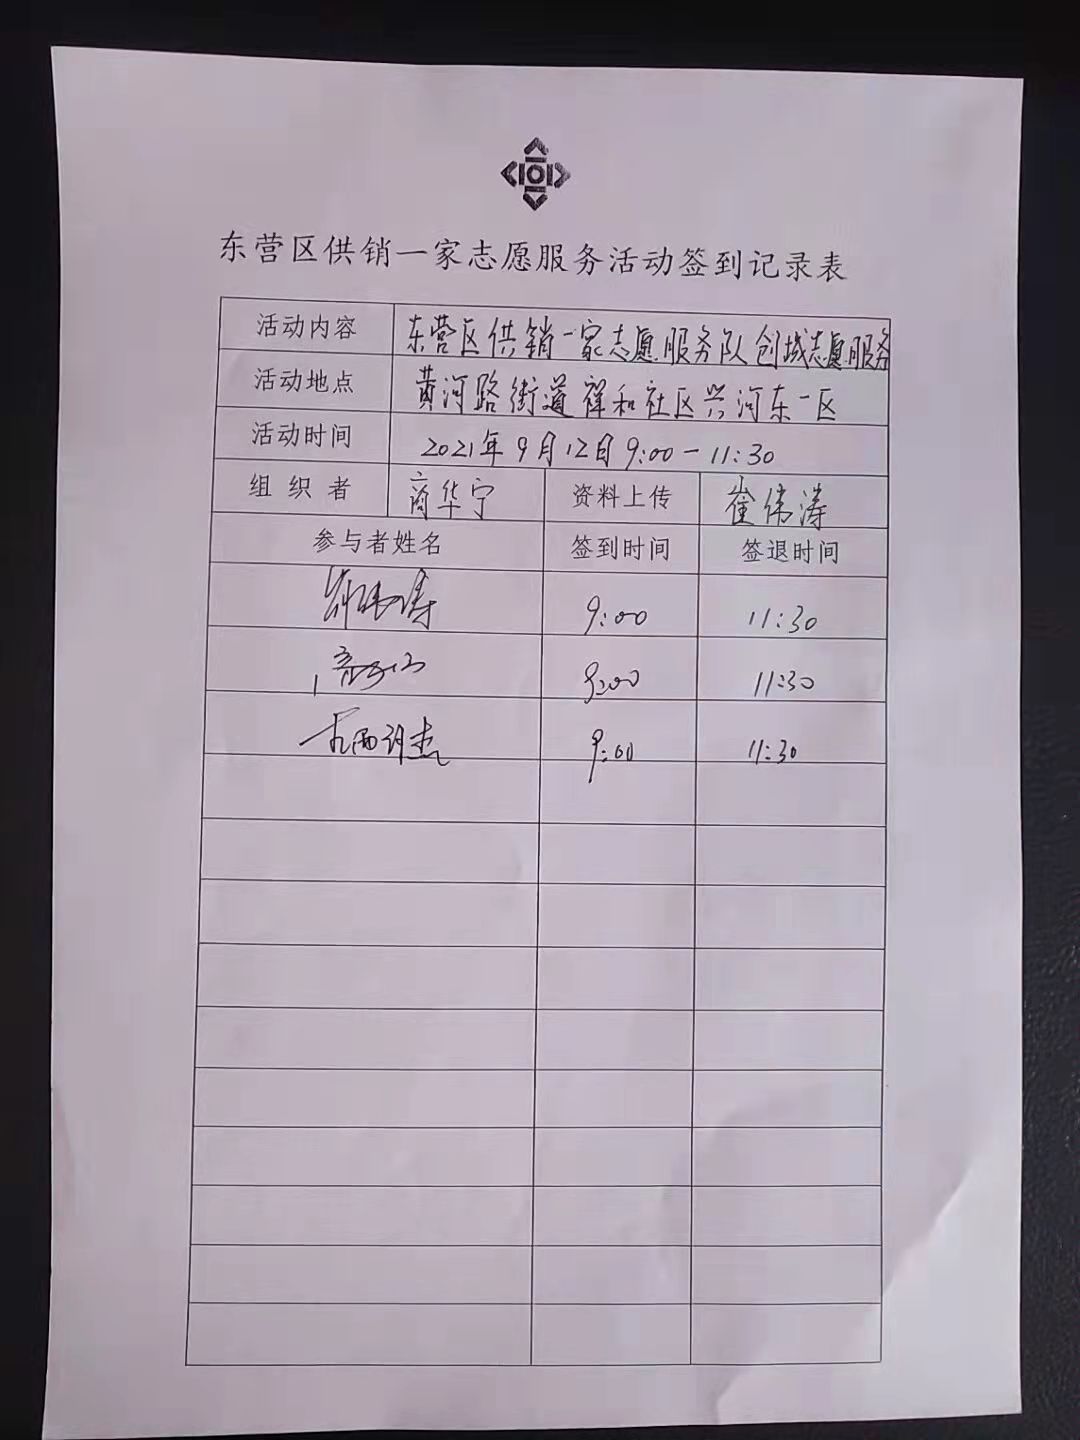 东营区供销一家志愿服务活动签到记录表
活动内容 东营区供销一家志愿服务队创城志愿服务
活动地点 黄河路街道祥和社区兴河东一区
活动时间 2021年9月12日9:00-11:30
组织者 商华宁 资料上传 崔伟涛
参与者姓名 签到时间 签退时间
9:00 11:30
9:00 11:30
9:00 11:30